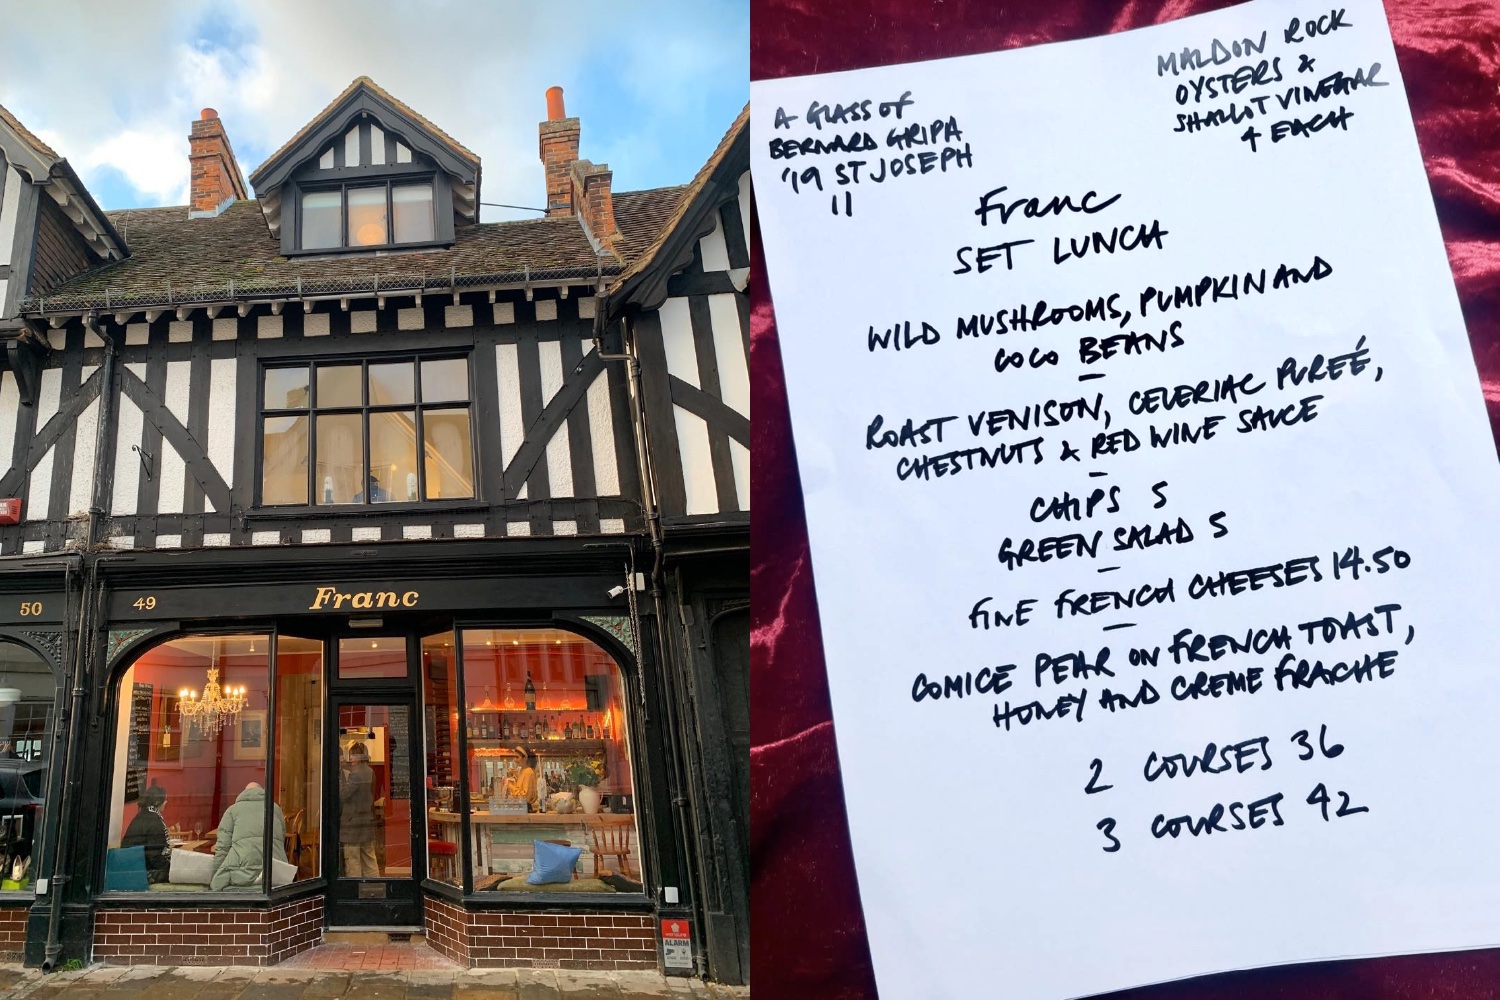 50
49
Franc
ALARM
A GLASS OF
BERNARD GRIPA
'19 ST JOSEPH
11
MALDON ROCK
OYSTERS &
SHALLOT VINEGAR
4 EACH
Franc
SET LUNCH
WILD MUSHROOMS, PUMPKIN AND
COCO BEANS
–
ROAST VENISON, CELERIAC PUREÉ,
CHESTNUTS & RED WINE SAUCE
–
CHIPS 5
GREEN SALAD 5
–
FINE FRENCH CHEESES 14.50
–
COMICE PEAR ON FRENCH TOAST,
HONEY AND CREME FRAICHE
2 COURSES 36
3 COURSES 42